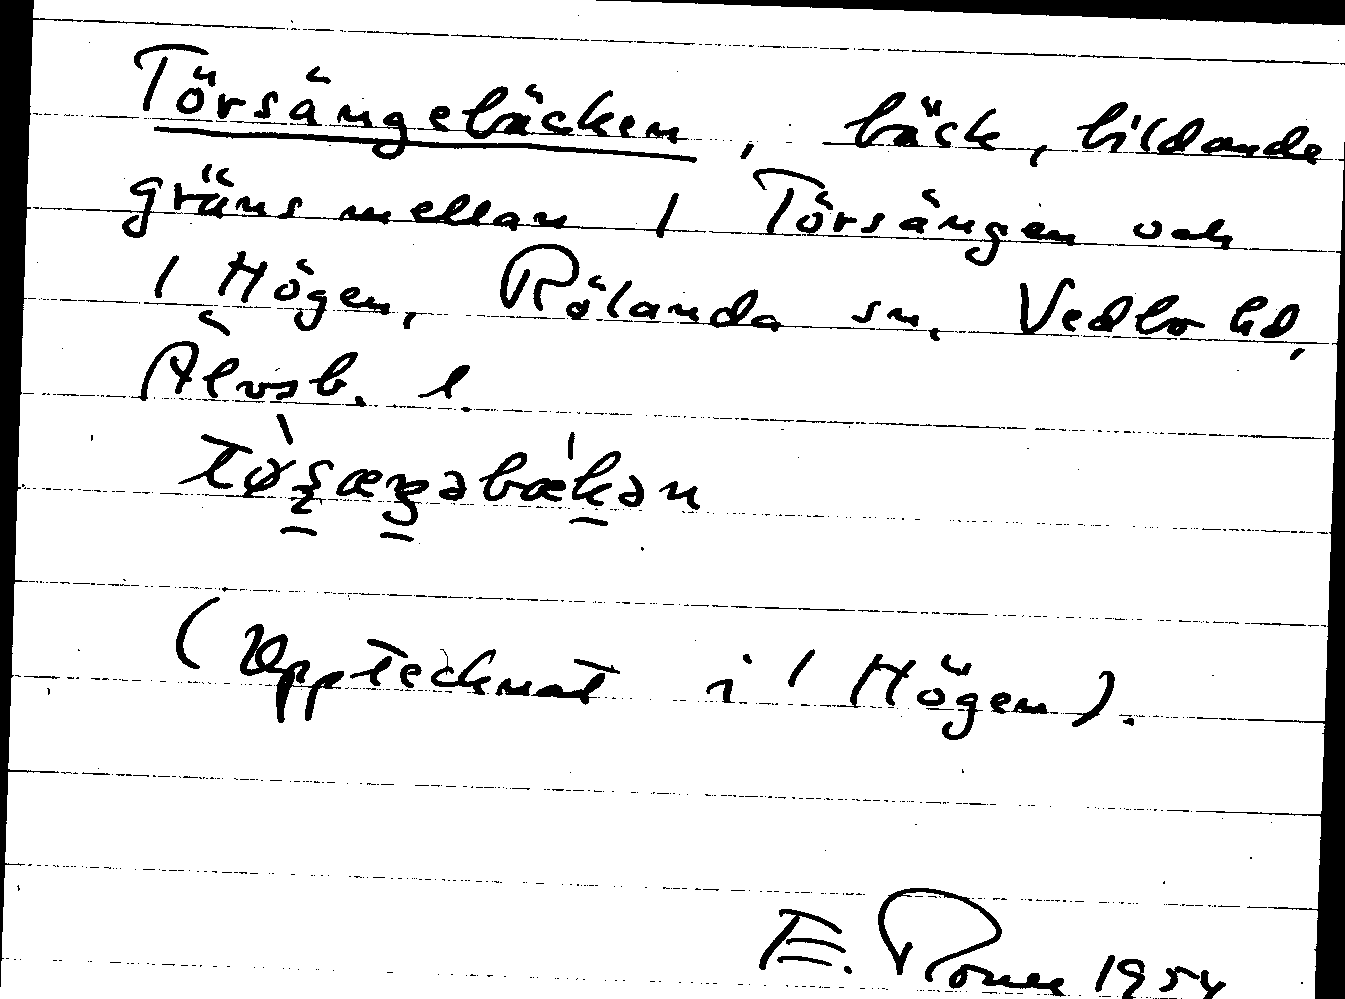 Törsängebäcken, bäck, bildande
gräns mellan 1 Törsängen och
1 Högen, Rölanda sn, Vedbo hd,
Älvsb. l.
(Upptecknat i 1 Högen).
E. 1954